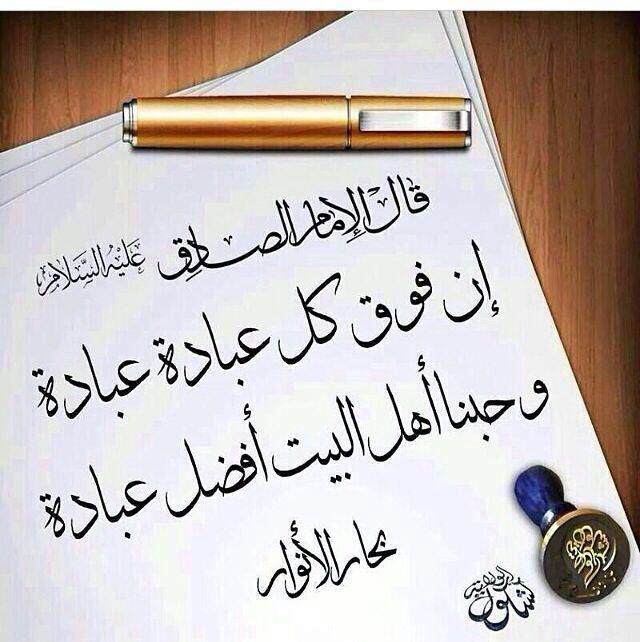 قال الإمام الصادق عليه السلام
إن فوق كل عبادة عبادة
وحبنا أهل البيت أفضل عبادة
بحار الأنوار